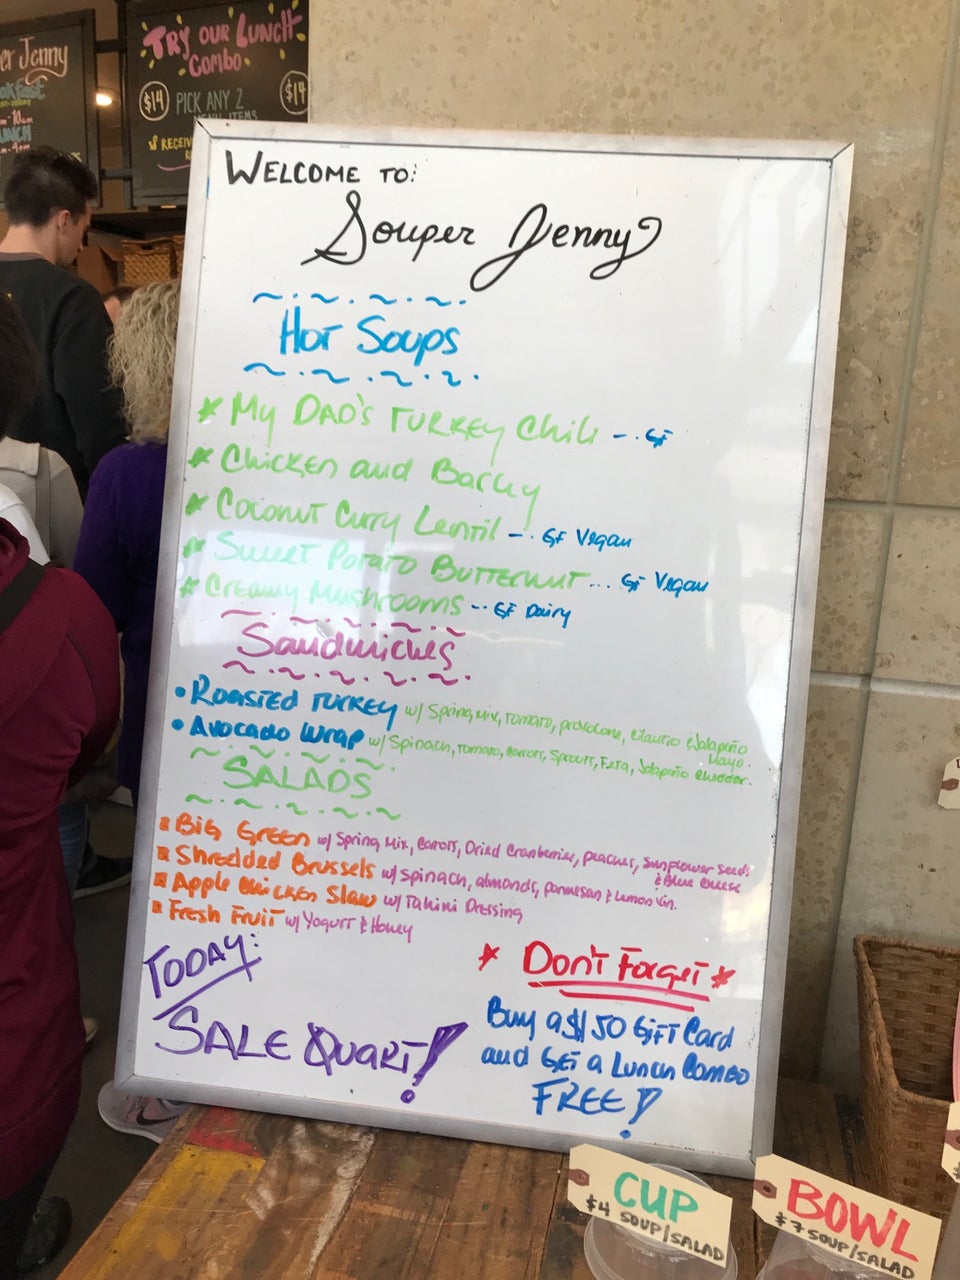 er Jenny
TRY OUR LUNCH
COMBO
$14 PICK ANY 2 $14
MENU ITEMS
RECEIV
WELCOME TO:
Souper Jenny
HOT SOUPS
* MY DAD'S TURKEY CHILI -. GF
* CHICKEN and BARLEY
* COCONUT CURRY LENTIL -. GF Vegan
* SWEET POTATO BUTTERNUT... GF Vegan
* CREAMY MUSHROOMS -- GF Dairy
Sandwiches
• ROASTED TURKEY w/ Spring Mix, Tomato, provolone, Cilantro & Jalapeño
Mayo.
• AVOCADO WRAP w/ Spinach, Tomato, Carrots, Sprouts, Feta, Jalapeño Cheddar.
SALADS
BIG GREEN w/ Spring Mix, Carrots, Dried Cranberries, peaches, Sunflower Seeds
& Blue Cheese
Shredded Brussels w/ Spinach, almonds, parmesan & Lemon Vin.
Apple Chicken Slaw w/ Tahini Dressing
Fresh Fruit w/ Yogurt & Honey
TODAY:
SALE QUART!
* DON'T FORGET *
Buy a $150 GIFT Card
and GET a Lunch Combo
FREE!
CUP
$4 SOUP/SALAD
BOWL
$7 SOUP/SALAD